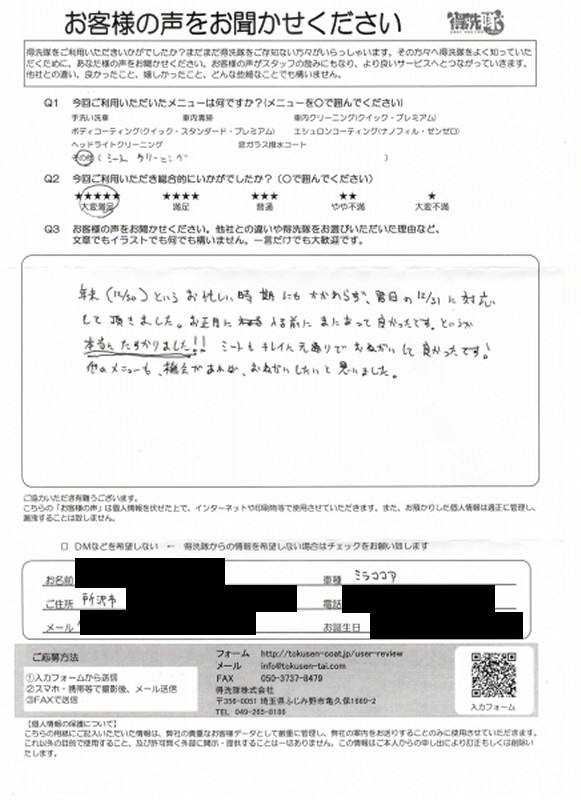 お客様の声をお聞かせください
得洗隊
得洗隊をご利用いただきいかがでしたか？まだまだ得洗隊をご存知ない方々がいらっしゃいます。その方々へ得洗隊をよく知っていた
だくために、あなた様の声をお聞かせください。お客様の声がスタッフの励みにもなり、より良いサービスへとつながっていきます。
他社との違い、良かったこと、嬉しかったこと、どんな些細なことでも構いません。
Q1 今回ご利用いただいたメニューは何ですか？(メニューを○で囲んでください)
手洗い洗車 車内清掃 車内クリーニング(クイック・プレミアム)
ボディコーティング(クイック・スタンダード・プレミアム) エシュロンコーティング(ナノフィル・ゼンゼロ)
ヘッドライトクリーニング 窓ガラス撥水コート
その他 ( シート クリーニング )
Q2 今回ご利用いただき総合的にいかがでしたか？ (○で囲んでください)
★★★★★ ★★★★ ★★★ ★★ ★
大変満足 満足 普通 やや不満 大変不満
Q3 お客様の声をお聞かせください。他社との違いや得洗隊をお選びいただいた理由など、
文章でもイラストでも何でも構いません。一言だけでも大歓迎です。
年末 (12/30) というお忙しい時期にもかかわらず、翌日の12/31に対応
して頂きました。お正月に入る前にまにあって良かったです。というか
本当にたすかりました!! シートもキレイに元通りでおねがいして良かったです!
他のメニューも、機会があれば、おねがいしたいと思いました。
ご協力いただき有難うございます。
こちらの「お客様の声」は個人情報を伏せた上で、インターネットや印刷物等で使用させていただきます。また、お預かりした個人情報は適正に管理し、
漏洩することは致しません。
□ DMなどを希望しない ← 得洗隊からの情報を希望しない場合はチェックをお願い致します
お名前 車種 ミラココア
ご住所 所沢市 電話
メール お誕生日
ご応募方法
①入力フォームから送信
②スマホ・携帯等で撮影後、メール送信
③FAXで送信
フォーム http://tokusen-coat.jp/user-review
メール info@tokusen-tai.com
FAX 050-3737-8479
得洗隊株式会社
〒356-0051 埼玉県ふじみ野市亀久保1669-2
TEL 049-265-8186
入力フォーム
【個人情報の保護について】
こちらの用紙にご記入いただいた情報は、弊社の貴重なお客様データとして厳重に管理し、弊社の案内をお送りすることのみに使用させていただきます。
これ以外の目的で使用すること、及び許可無く外部に開示・提供することは一切ありません。この情報はご本人からの申し出により訂正もしくは削除いた
します。